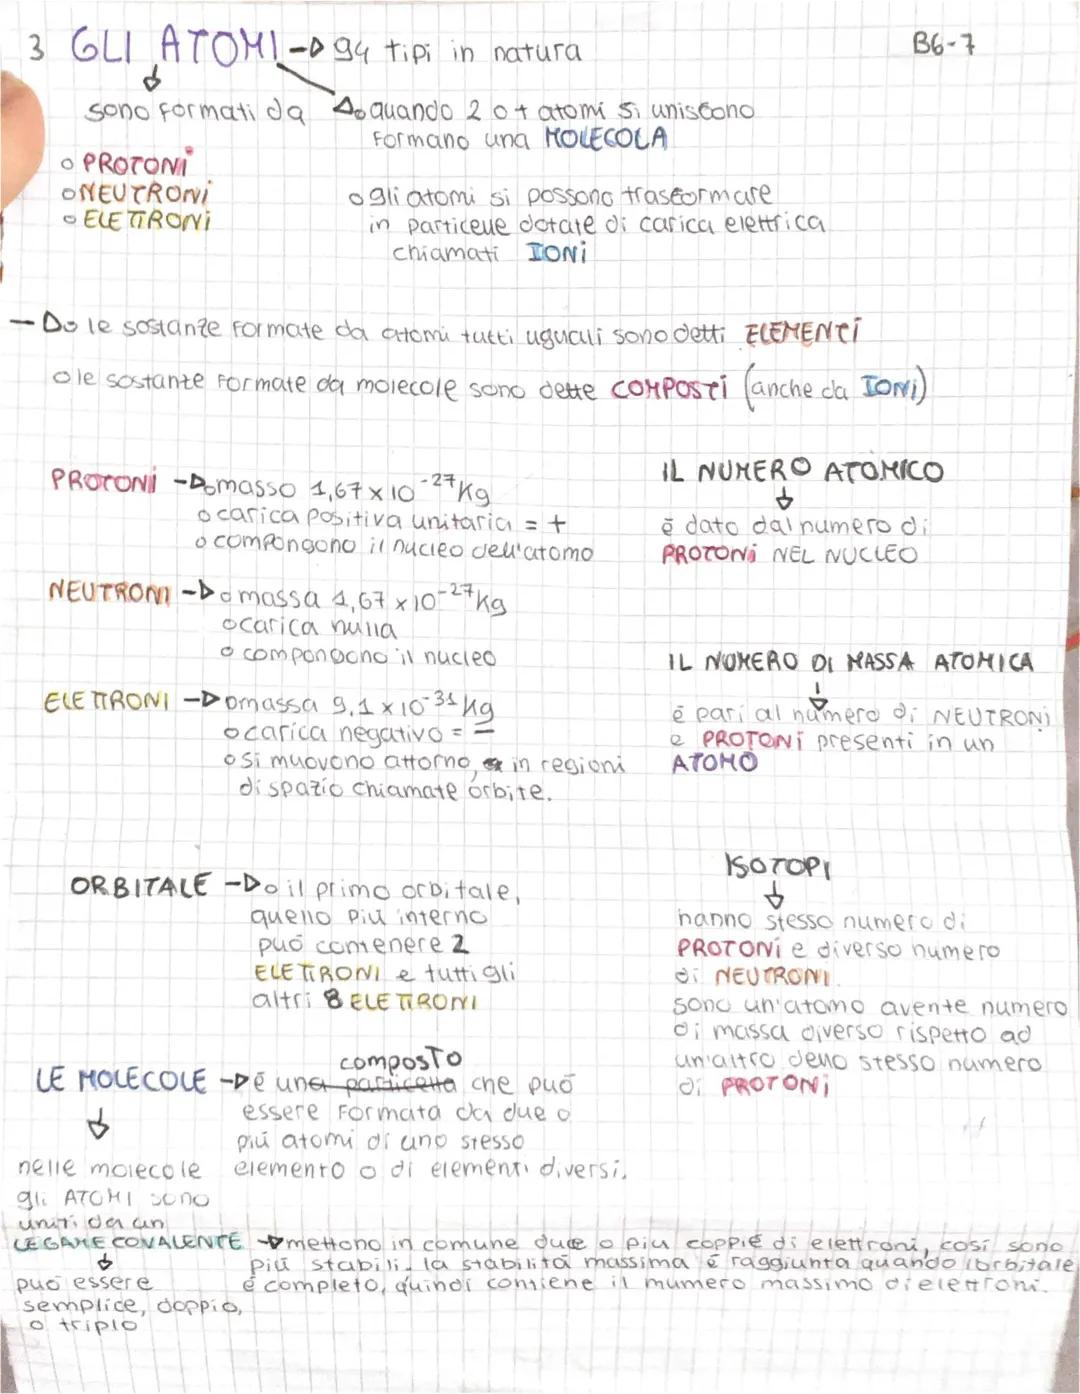 3 GLI ATOMI → 94 tipi in natura
B6-7
sono formati da
o quando 2 o + atomi si uniscono
formano una MOLECOLA
o PROTONI
o NEUTRONI
o ELETTRONI
o gli atomi si possono trasformare
in particelle dotate di carica elettrica
chiamati IONI
→ o le sostanze formate da atomi tutti uguali sono detti ELEMENTI
o le sostanze formate da molecole sono dette COMPOSTI (anche da IONI)
PROTONI → o masso 1,67 x 10⁻²⁷ Kg
o carica positiva unitaria = +
o compongono il nucleo dell'atomo
IL NUMERO ATOMICO
é dato dal numero di
PROTONI NEL NUCLEO
NEUTRONI → o massa 1,67 x 10⁻²⁷ Kg
o carica nulla
o compongono il nucleo
IL NUMERO DI MASSA ATOMICA
é pari al numero di NEUTRONI
e PROTONI presenti in un
ATOMO
ELETTRONI → o massa 9,1 x 10⁻³¹ Kg
o carica negativo = -
o si muovono attorno, in regioni
di spazio chiamate orbite.
ORBITALE → o il primo orbitale,
quello piú interno
puó contenere 2
ELETTRONI e tutti gli
altri 8 ELETTRONI
ISOTOPI
hanno stesso numero di
PROTONI e diverso numero
di NEUTRONI.
sono un'atomo avente numero
di massa diverso rispetto ad
un'altro dello stesso numero
di PROTONI
composTo
LE MOLECOLE → é una particella che puó
essere formata da due o
piú atomi di uno stesso
elemento o di elementi diversi.
nelle molecole
gli ATOMI sono
uniti da un
LEGAME COVALENTE → mettono in comune due o piu coppie di elettroni, cosí sono
piú stabili. la stabilitá massima é raggiunta quando l'orbitale
é completo, quindi contiene il numero massimo di elettroni.
puó essere
semplice, doppio,
o triplo